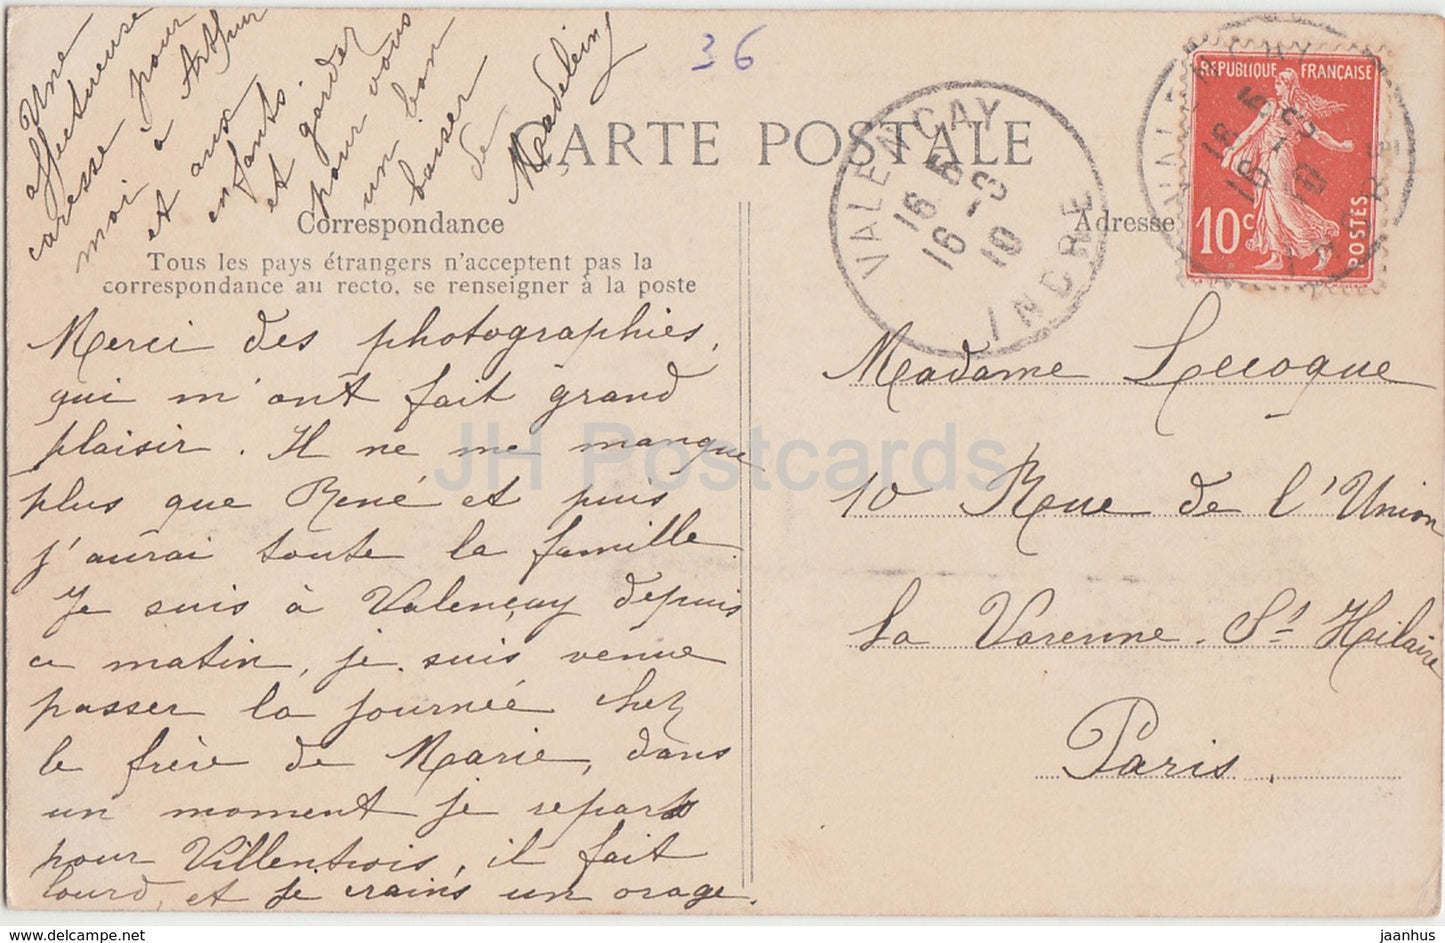 Une
affectueuse
caresse pour
moi à Arthur
et aux
enfants.
et garder
pour vous
un bon
baiser
de
Madeleine
36
CARTE POSTALE
Correspondance
Tous les pays étrangers n'acceptent pas la
correspondance au recto, se renseigner à la poste
Merci des photographies,
qui m'ont fait grand
plaisir. Il ne me manque
plus que René et puis
j'aurai toute la famille.
Je suis à Valençay depuis
ce matin, je suis venue
passer la journée chez
le frère de Marie, dans
un moment je repars
pour Villentrois, il fait
lourd, et je crains un orage.
VALENÇAY
16 5
16 -8
10
INDRE
Adresse
REPUBLIQUE FRANÇAISE
10c
POSTES
Madame Lecoque
10 Rue de l'Union
La Varenne St Hailaire
Paris
JH Postcards
www.delcampe.net
jaanhus